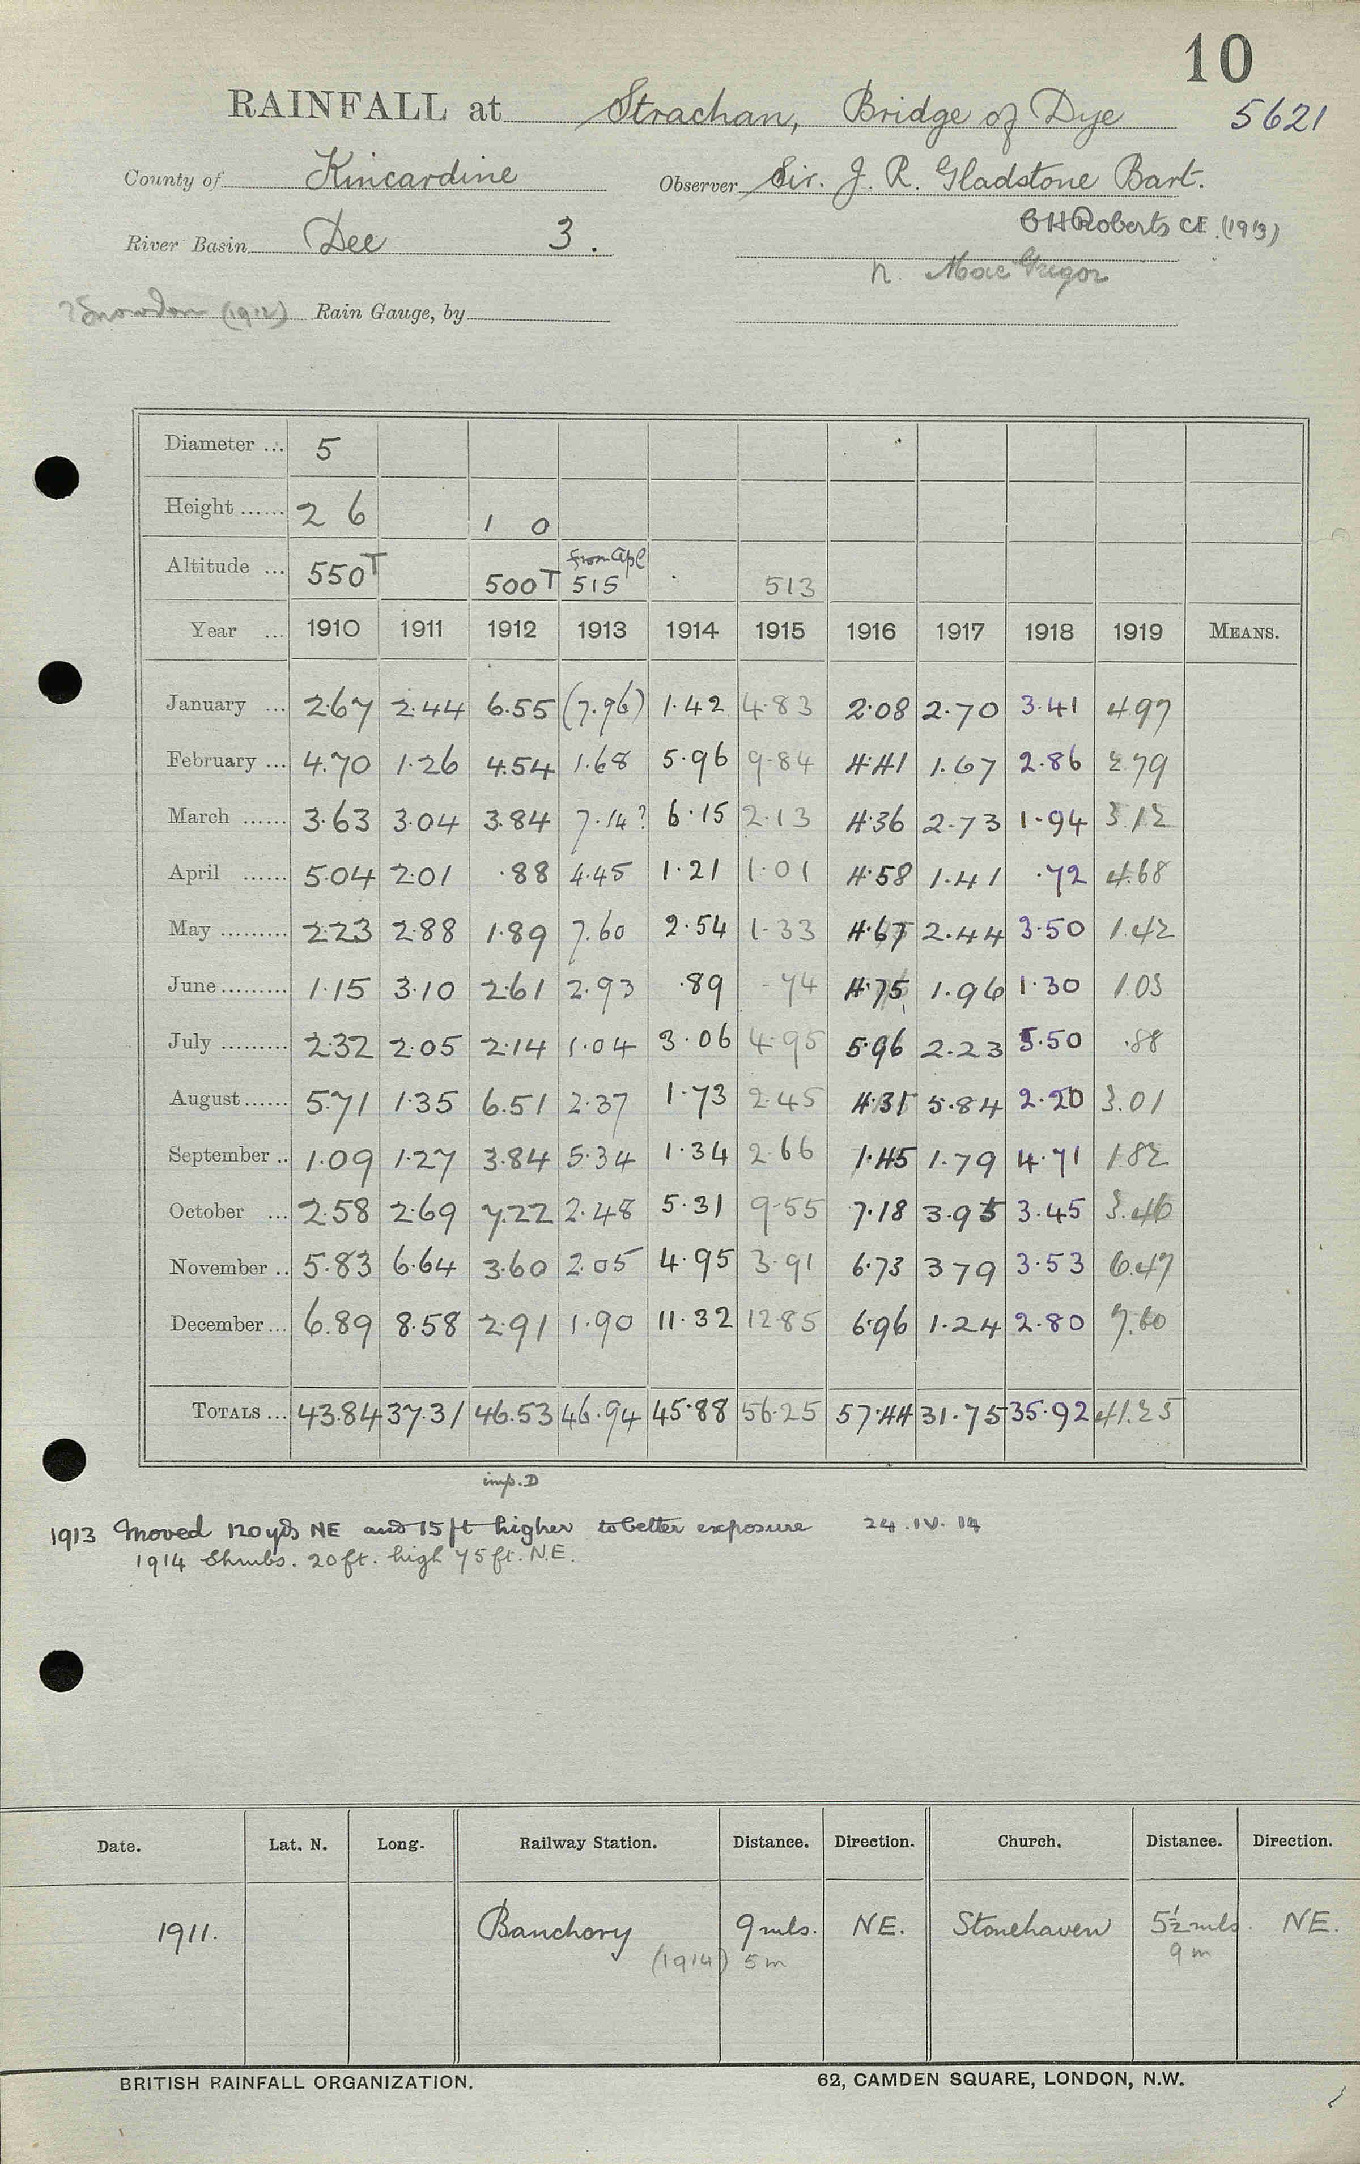 10
RAINFALL at Strachan, Bridge of Dye 5621
County of Kincardine Observer Sir. J. R. Gladstone Bart.
G H Roberts CE. (1913)
River Basin Dee 3.
N. MacGregor
Snowdon (1912) Rain Gauge, by
Diameter ... 5
Height ...... 2 6 1 0
Altitude ... 550T 500T from Apl 515 513
Year ... 1910 1911 1912 1913 1914 1915 1916 1917 1918 1919 MEANS.
January ... 2.67 2.44 6.55 (7.96) 1.42 4.83 2.08 2.70 3.41 4.97
February ... 4.70 1.26 4.54 1.68 5.96 9.84 4.41 1.67 2.86 2.79
March ...... 3.63 3.04 3.84 7.14? 6.15 2.13 4.36 2.73 1.94 3.12
April ...... 5.04 2.01 .88 4.45 1.21 1.01 4.58 1.41 .72 4.68
May ......... 2.23 2.88 1.89 7.60 2.54 1.33 4.67 2.44 3.50 1.42
June ......... 1.15 3.10 2.61 2.93 .89 .74 4.75 1.96 1.30 1.03
July ......... 2.32 2.05 2.14 1.04 3.06 4.95 5.96 2.23 5.50 .88
August ...... 5.71 1.35 6.51 2.37 1.73 2.45 4.31 5.84 2.20 3.01
September .. 1.09 1.27 3.84 5.34 1.34 2.66 1.45 1.79 4.71 1.82
October ... 2.58 2.69 7.22 2.48 5.31 9.55 7.18 3.95 3.45 3.46
November .. 5.83 6.64 3.60 2.05 4.95 3.91 6.73 3.79 3.53 6.47
December ... 6.89 8.58 2.91 1.90 11.32 12.85 6.96 1.24 2.80 7.60
TOTALS ... 43.84 37.31 46.53 46.94 45.88 56.25 57.44 31.75 35.92 41.25
imp. D
1913 Moved 120 yds NE and 15 ft higher to better exposure 24.IV.14
1914 Shrubs. 20 ft. high 75 ft. N.E.
Date. Lat. N. Long. Railway Station. Distance. Direction. Church. Distance. Direction.
1911. Banchory 9 mls. NE. Stonehaven 5½ mls. NE.
(1914) 5 m 9 m
BRITISH RAINFALL ORGANIZATION. 62, CAMDEN SQUARE, LONDON, N.W.